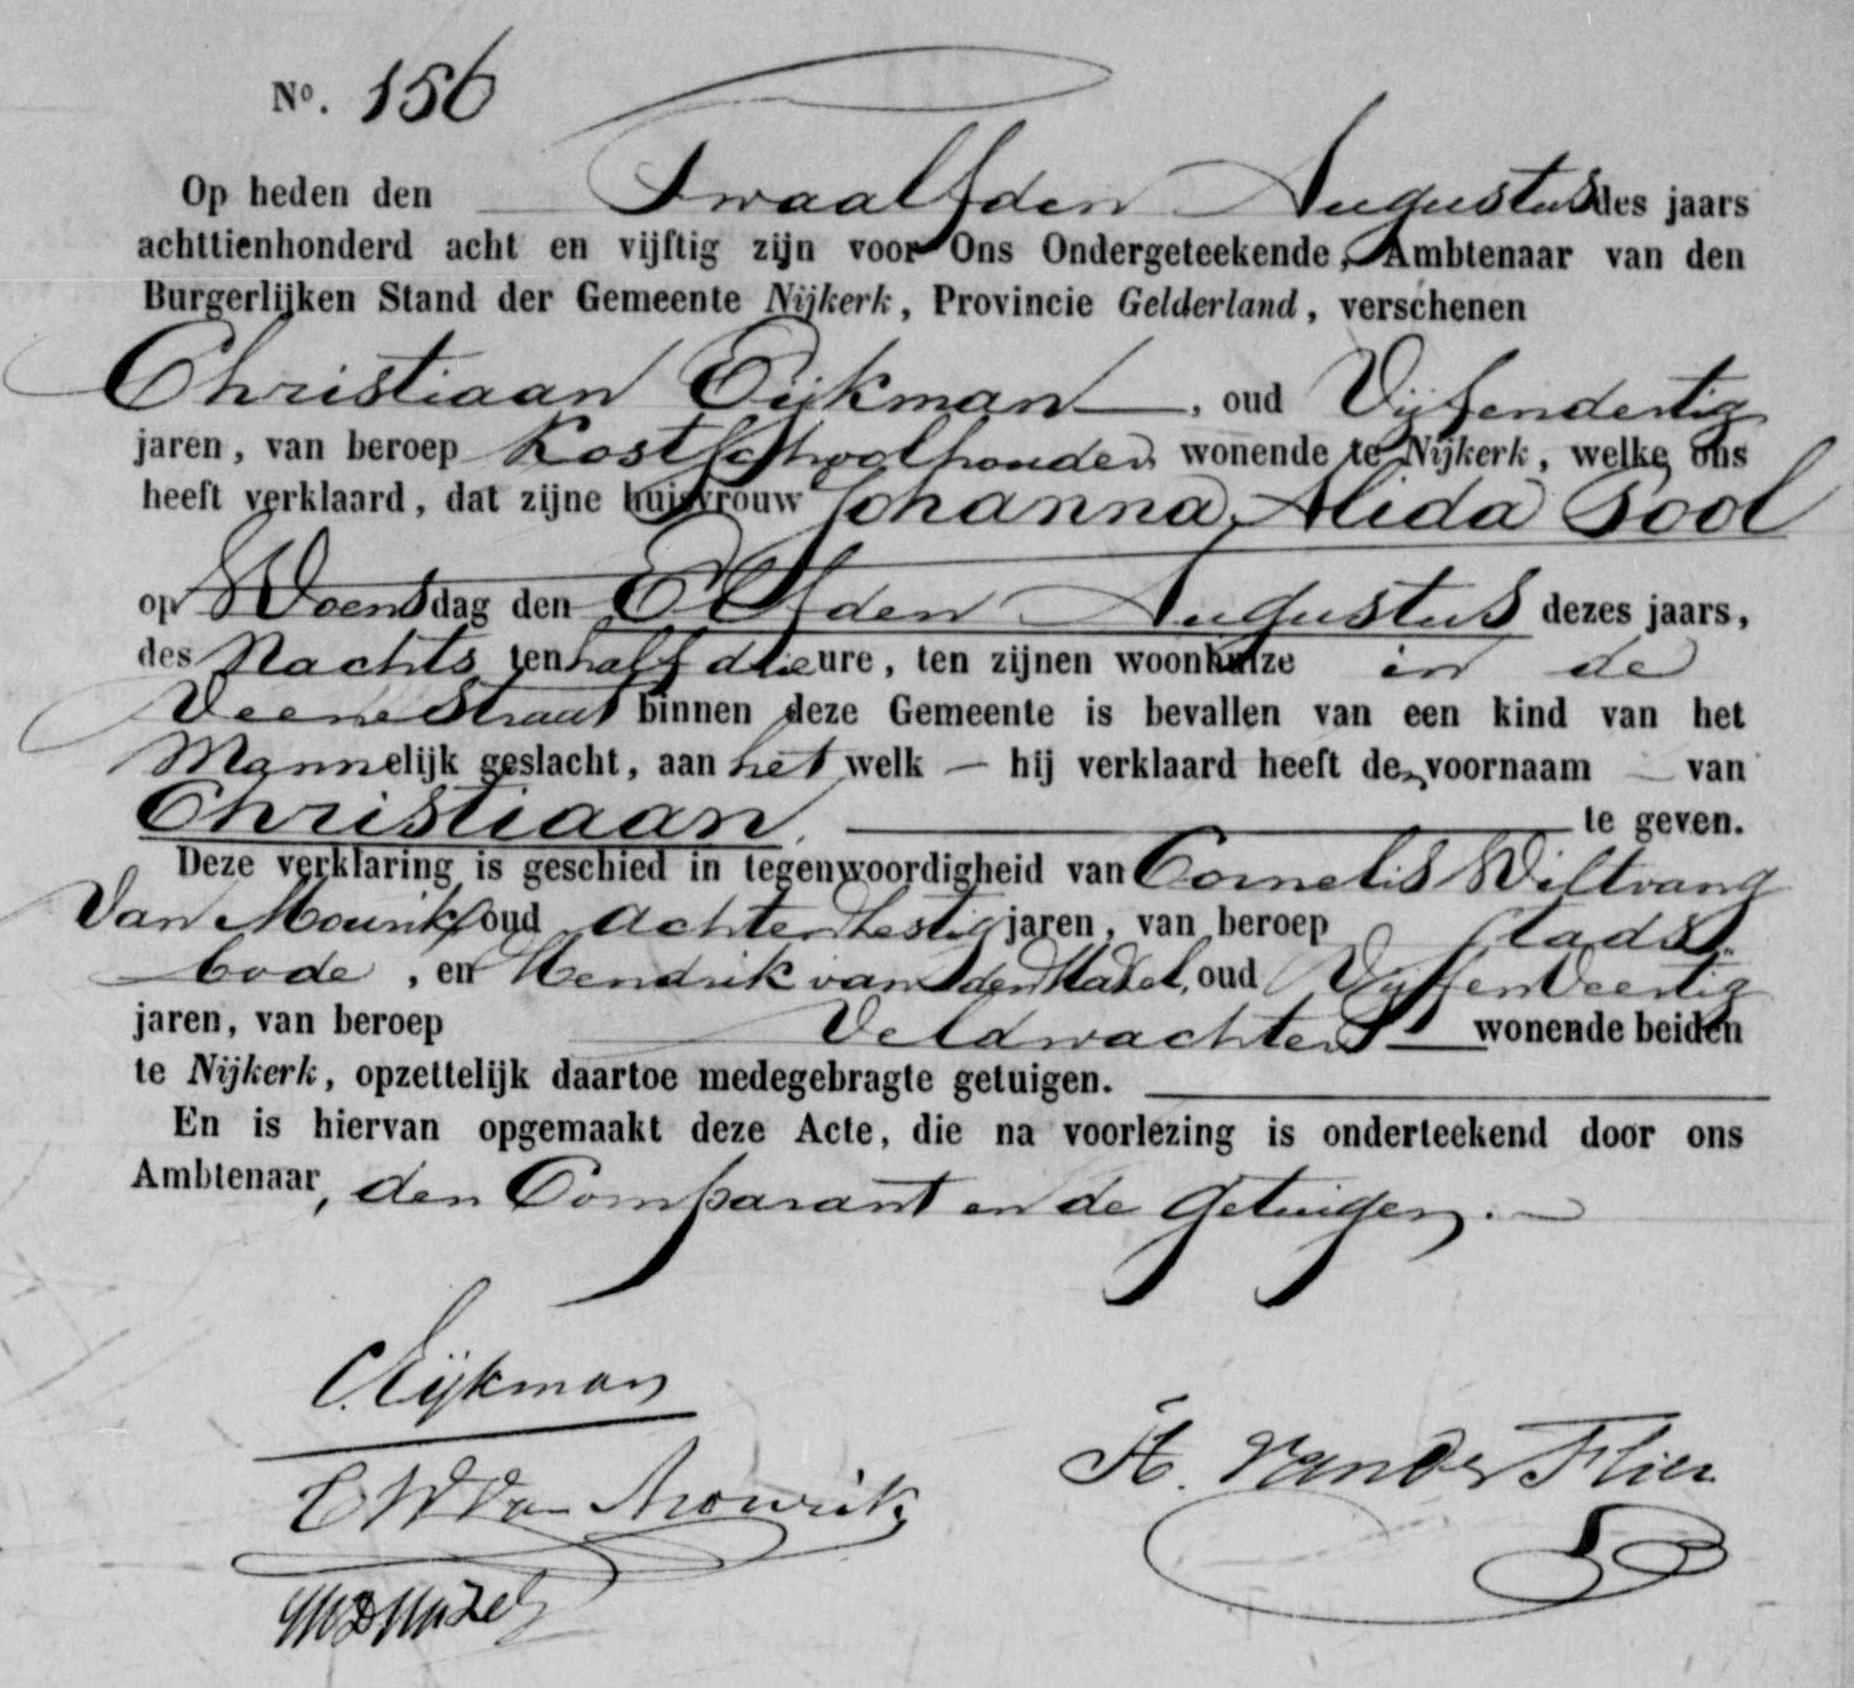 No. 156
Op heden den Twaalfden Augustus des jaars
achttienhonderd acht en vijftig zijn voor Ons Ondergeteekende, Ambtenaar van den
Burgerlijken Stand der Gemeente Nijkerk, Provincie Gelderland, verschenen
Christiaan Eijkman, oud Vijfendertig
jaren, van beroep Kostschoolhouder wonende te Nijkerk, welke ons
heeft verklaard, dat zijne huisvrouw Johanna Alida Pool
op Woensdag den Elfden Augustus dezes jaars,
des Nachts ten half drie ure, ten zijnen woonhuize in de
Veenestraat binnen deze Gemeente is bevallen van een kind van het
Mannelijk geslacht, aan het welk — hij verklaard heeft den voornaam — van
Christiaan. te geven.
Deze verklaring is geschied in tegenwoordigheid van Cornelis Wiltvang
van Mourik, oud Achtenzestig jaren, van beroep Stads
bode, en Hendrik van den Hazel, oud Vijfenveertig
jaren, van beroep Veldwachter wonende beiden
te Nijkerk, opzettelijk daartoe medegebragte getuigen.
En is hiervan opgemaakt deze Acte, die na voorlezing is onderteekend door ons
Ambtenaar, den Comparant en de getuigen. —
C. Eijkman
C W Van Mourik
H. van der Flier